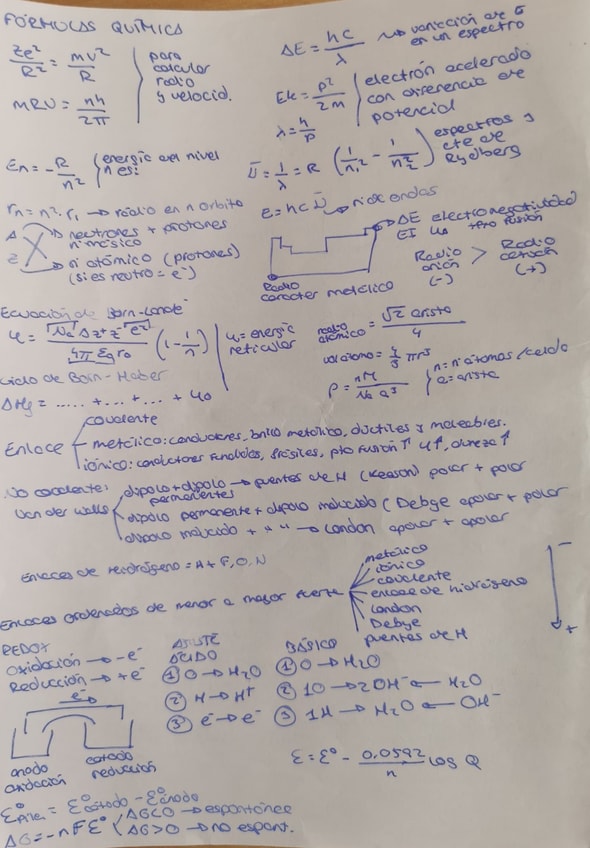 FÓRMULAS QUÍMICA
Ze²/R² = mv²/R
MRV = nh/2π
para calcular radio y velocid.
ΔE = hc/λ → variación de E en un espectro
Ek = p²/2m
λ = h/p
electrón acelerado con diferencia de potencial
En = -R/n²
energía del nivel n es:
Ū = 1/λ = R (1/n₁² - 1/n₂²)
espectros y cte de Rydberg
rn = n²·r₁ → radio en n órbita
e = hc Ū → nº de ondas
A → neutrones + protones
nº másico
Z → nº atómico (protones)
(si es neutro = e⁻)
ΔE electronegatividad
EI
pto fusión
Radio
carácter metálico
Radio anión (-) > Radio catión (+)
Ecuación de Born-Landé
(1 - 1/n)
4π ε₀ r₀
U₀ = energía reticular
radio atómico = √2 arista / 4
vol átomo = 4/3 πr³
ρ = nM / Na a³
n = nº átomos/celda
a = arista
Ciclo de Born-Haber
ΔHf = ..... + ... + ... + U₀
Enlace
covalente
metálico: conductores, brillo metálico, dúctiles y maleables.
iónico: conductores fundidos, frágiles, pto fusión ↑ U↑, dureza ↑
No covalente:
Van der Walls
dipolo + dipolo → puentes de H (Keason) polar + polar
permanentes
dipolo permanente + dipolo inducido (Debye apolar + polar
dipolo inducido + " " → London apolar + apolar
Enlaces de hidrógeno = H + F, O, N
Enlaces ordenados de menor a mayor fuerza
metálico
iónico
covalente
enlace de hidrógeno
London
Debye
puentes de H
-
+
REDOX
Oxidación → -e⁻
Reducción → +e⁻
e⁻
ánodo
oxidación
cátodo
reducción
AJUSTE
ÁCIDO
① O → H₂O
② H → H⁺
③ e⁻ → e⁻
BÁSICO
① O → H₂O
② 1O → 2OH⁻ ← H₂O
③ 1H → H₂O ← OH⁻
ε = ε⁰ - 0,0592/n log Q
ε⁰pila = ε⁰cátodo - ε⁰ánodo
ΔG = -nFε⁰
ΔG<0 → espontánea
ΔG>0 → no espont.